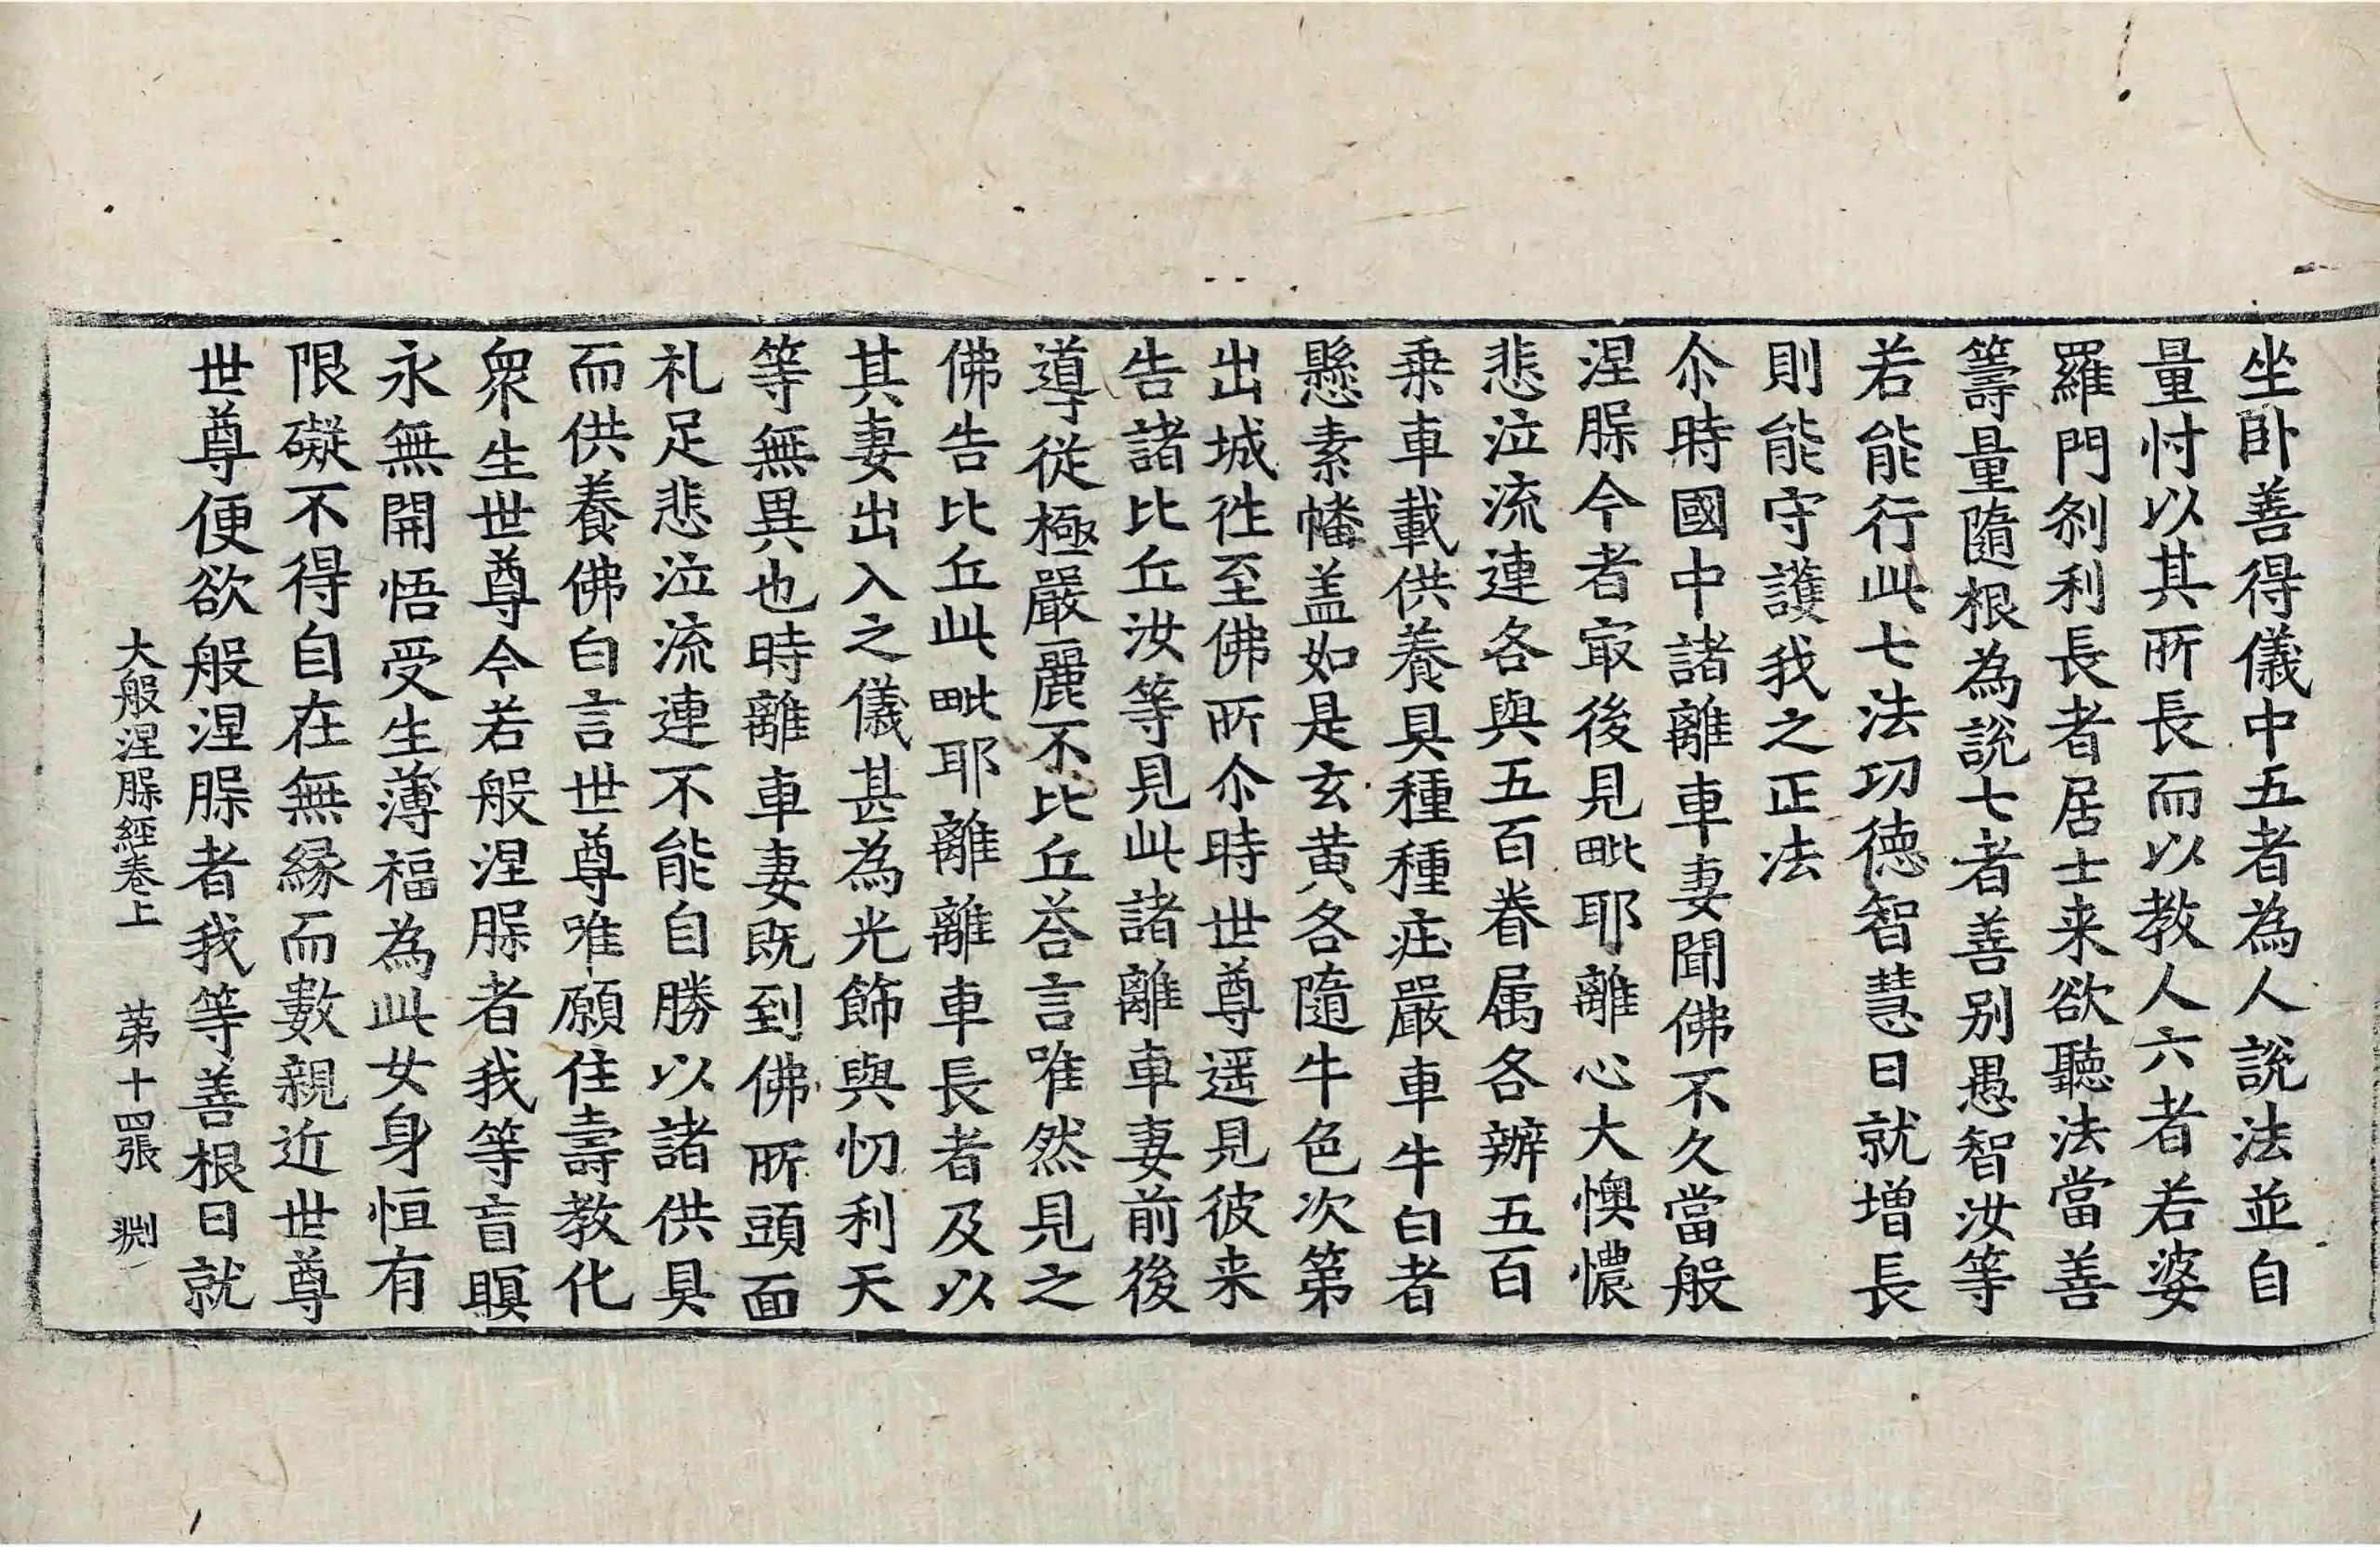 坐卧善得儀中五者為人說法並自
量忖以其所長而以教人六者若婆
羅門刹利長者居士来欲聽法當善
籌量隨根為說七者善别愚智汝等
若能行此七法功徳智慧日就增長
則能守護我之正法
尒時國中諸離車妻聞佛不久當般
涅槃今者㝡後見毗耶離心大懊憹
悲泣流連各與五百眷属各辦五百
乗車載供養具種種庄嚴車牛白者
懸素幡盖如是玄黄各隨牛色次第
出城徃至佛所尒時世尊遥見彼来
告諸比丘汝等見此諸離車妻前後
導從極嚴麗不比丘荅言唯然見之
佛告比丘此毗耶離離車長者及以
其妻出入之儀甚為光飾與忉利天
等無異也時離車妻既到佛所頭面
礼足悲泣流連不能自勝以諸供具
而供養佛白言世尊唯願住壽教化
衆生世尊今若般涅槃者我等盲瞑
永無開悟受生薄福為此女身恒有
限礙不得自在無縁而數親近世尊
世尊便欲般涅槃者我等善根日就
大般涅槃經卷上 苐十四張 渕